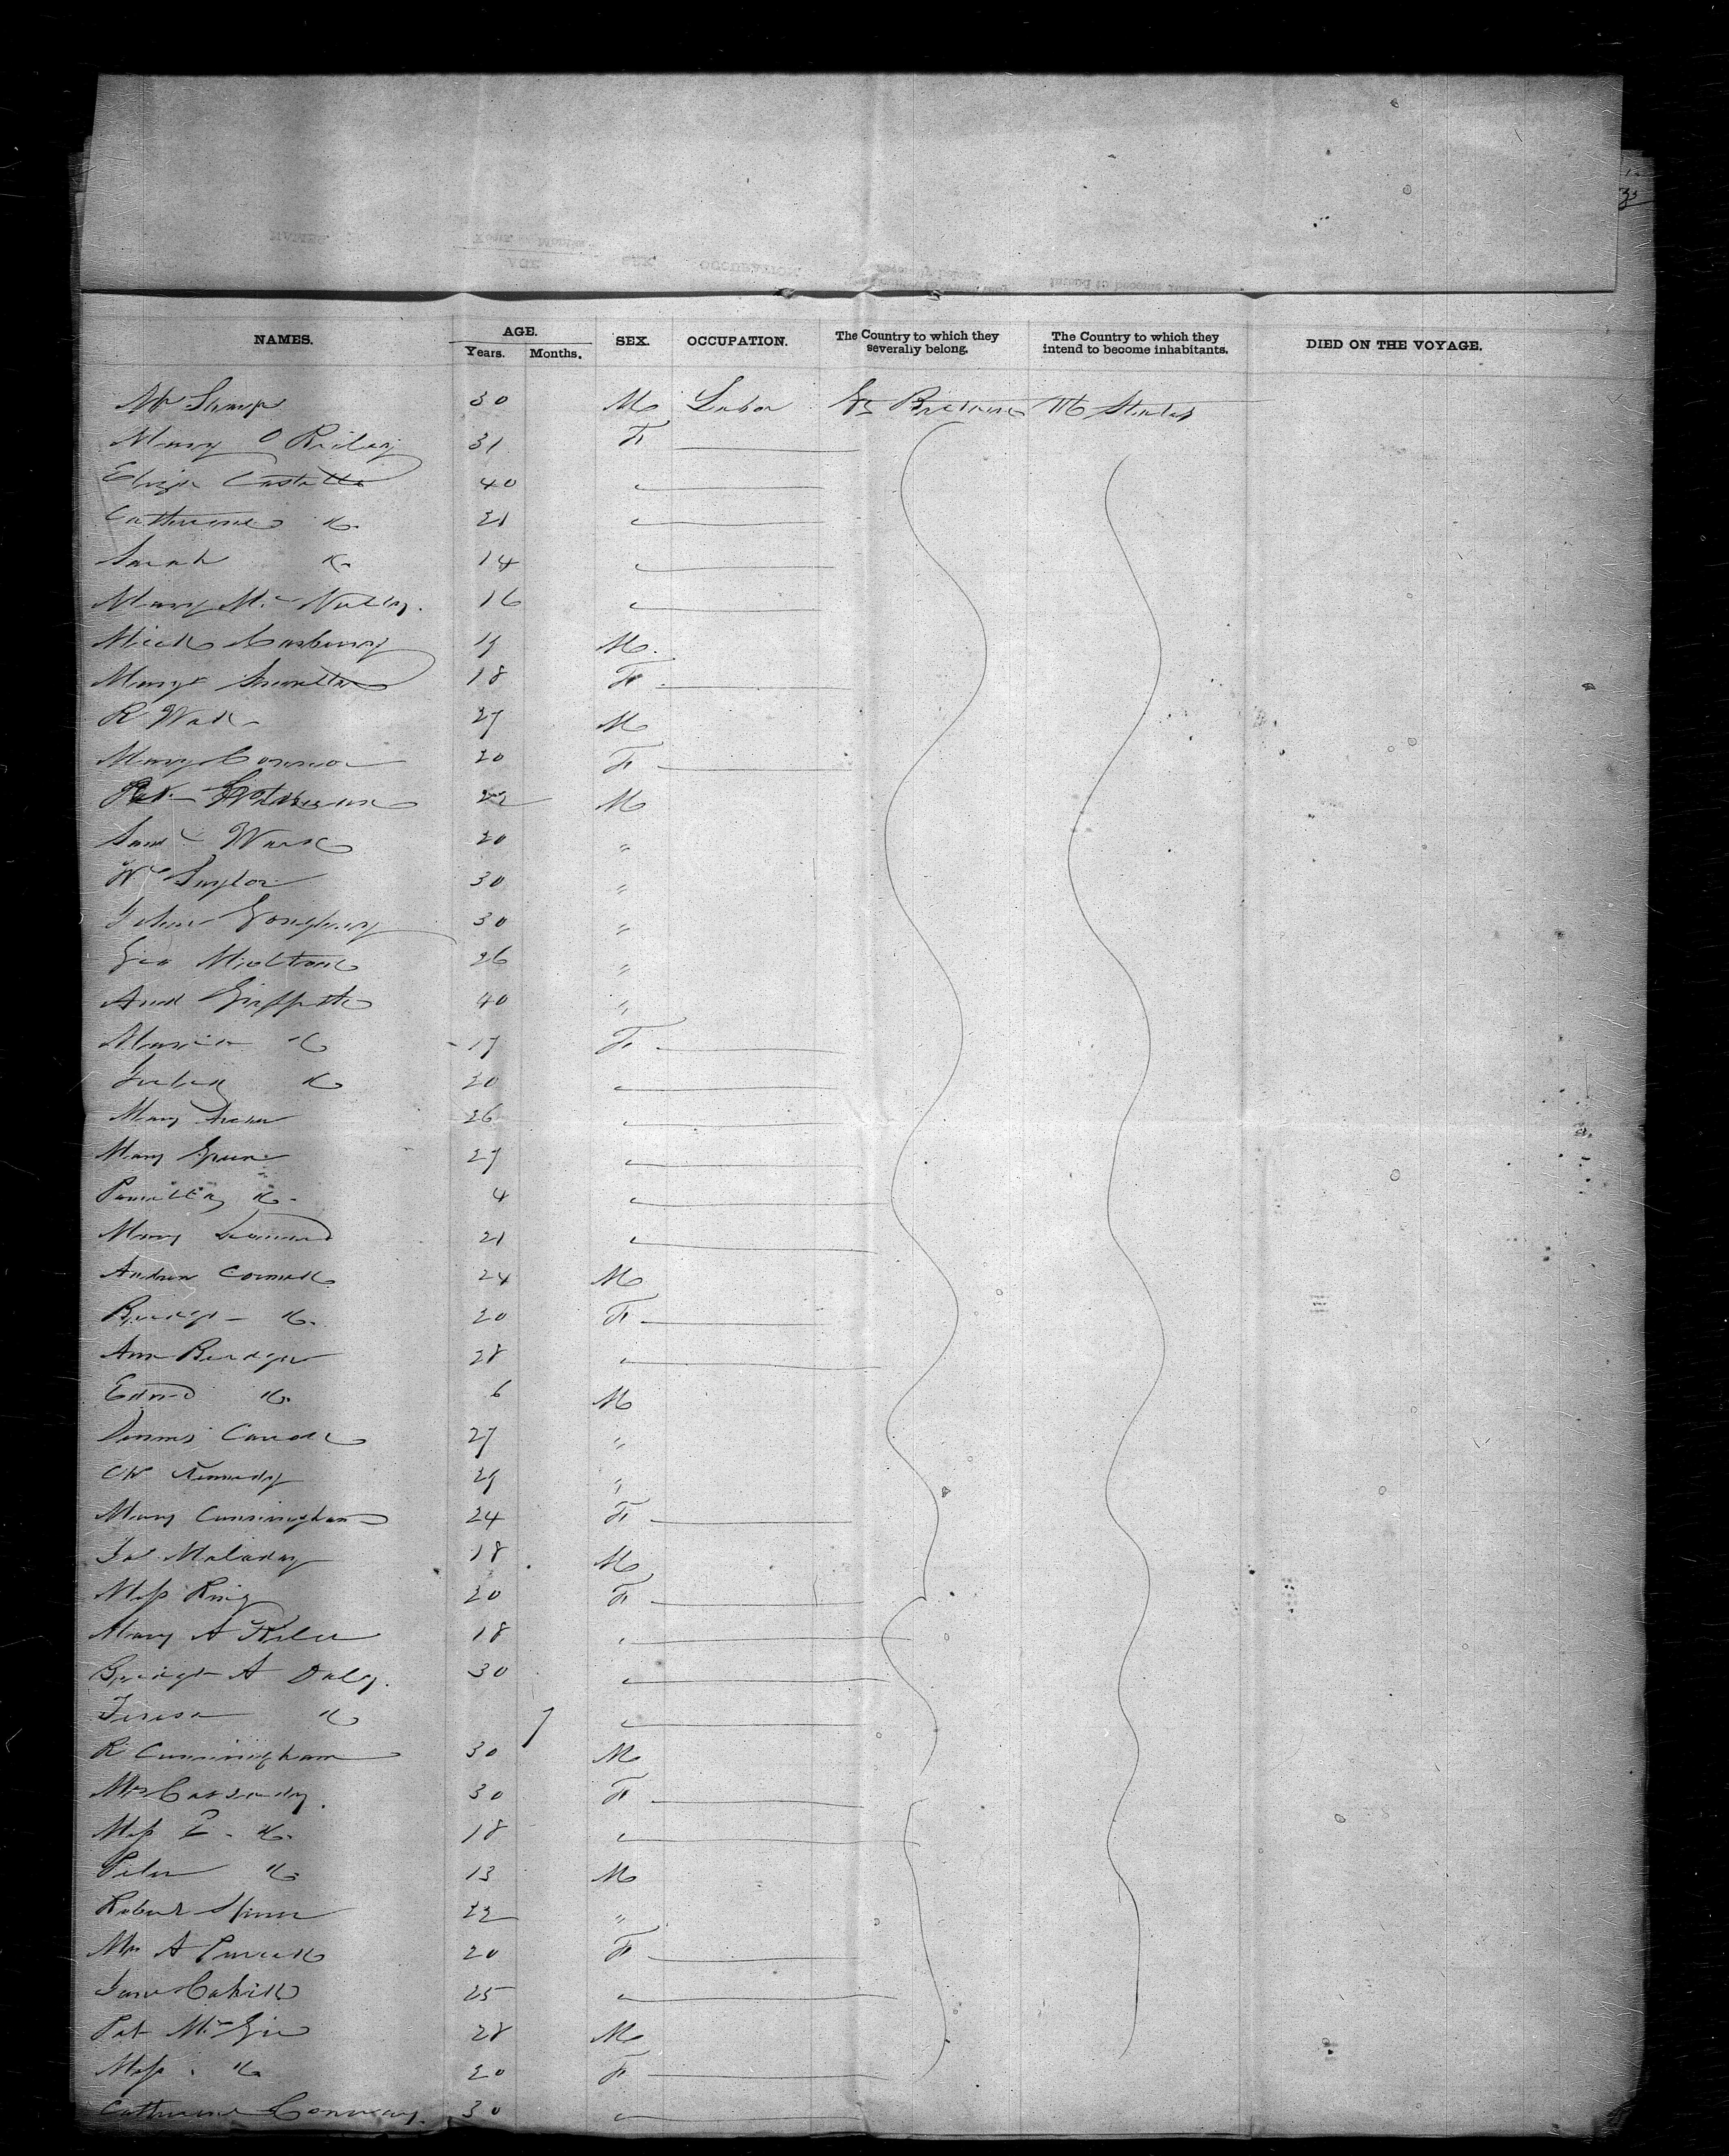 NAMES. AGE. Years. Months. SEX. OCCUPATION. The Country to which they severally belong. The Country to which they intend to become inhabitants. DIED ON THE VOYAGE.
Mr 30 M Labor Gt Britain U States
Mary O Reiley 31 F
Eliza Costello 40 "
Catherine " 21 "
Sarah " 14 "
Mary Mc Nulty. 16 "
Mick 19 M.
Margt 18 F.
R Wade 27 M
Mary Connor 20 F
Pat 22 M
Saml Ward 20 "
Wm Taylor 30 "
John 30 "
Geo 26 "
And Griffith 40 "
Maria " 17 F
" 20 "
Mary 26 "
Mary Green 27 "
" 4 "
Mary Leonard 21 "
Andrew Connell 24 M
Bridget " 20 F
Ann 28 "
Edwd " 6 M
Dennis Carroll 27 "
Kennedy 29 "
Mary Cunningham 24 F
Jas 18 M
Miss King 20 F
Mary A 18 "
Bridget A Daly. 30 "
Teresa " 7 "
R Cunningham 30 M
Mrs Cassidy 30 F
Miss E. " 18 "
Peter " 13 M
Robert 22 "
Mrs A Purcell 20 F
Jane Cahill 25 "
Pat Mc Gee 28 M
Miss " 20 F
Catherine Conway. 30 "